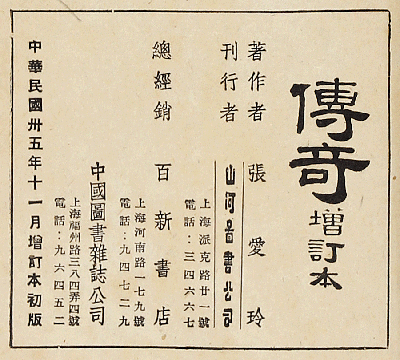 傳奇增訂本
著作者 張愛玲
刊行者 山河圖書公司
上海派克路廿一號
電話：三四六六七
總經銷 百新書店
上海河南路一七九號
電話：九四七二九
中國圖書雜誌公司
上海福州路三八四弄四號
電話：九六四五二
中華民國卅五年十一月增訂本初版